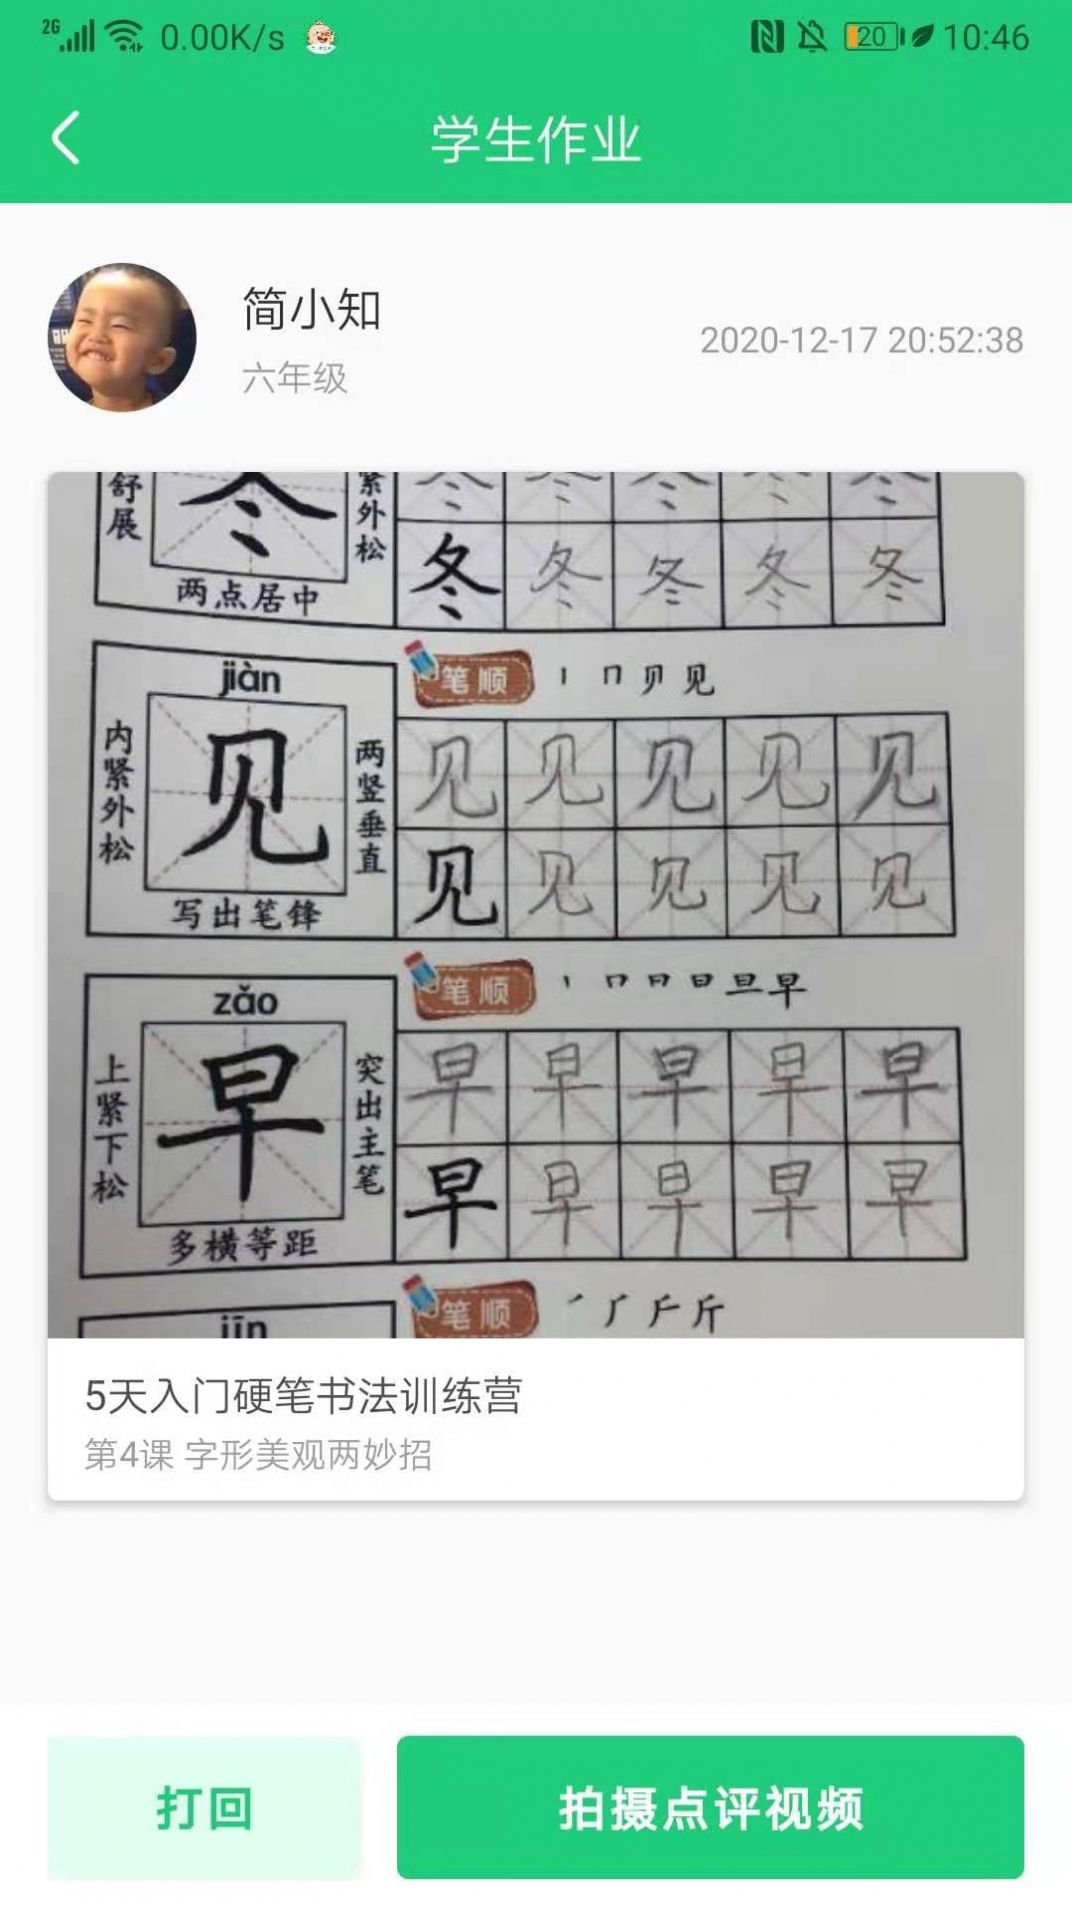 2G 0.00K/s 20 10:46
学生作业
简小知
六年级
2020-12-17 20:52:38
舒展
冬
紧外松
两点居中
冬 冬 冬 冬 冬
冬 冬 冬 冬 冬
jiàn
内紧外松
见
两竖垂直
写出笔锋
笔顺
丨 冂 贝 见
见 见 见 见 见
见 见 见 见 见
zǎo
上紧下松
早
突出主笔
多横等距
笔顺
丨 冂 日 日 旦 早
早 早 早 早 早
早 早 早 早 早
jīn
笔顺
丿 厂 斤 斤
5天入门硬笔书法训练营
第4课 字形美观两妙招
打回
拍摄点评视频